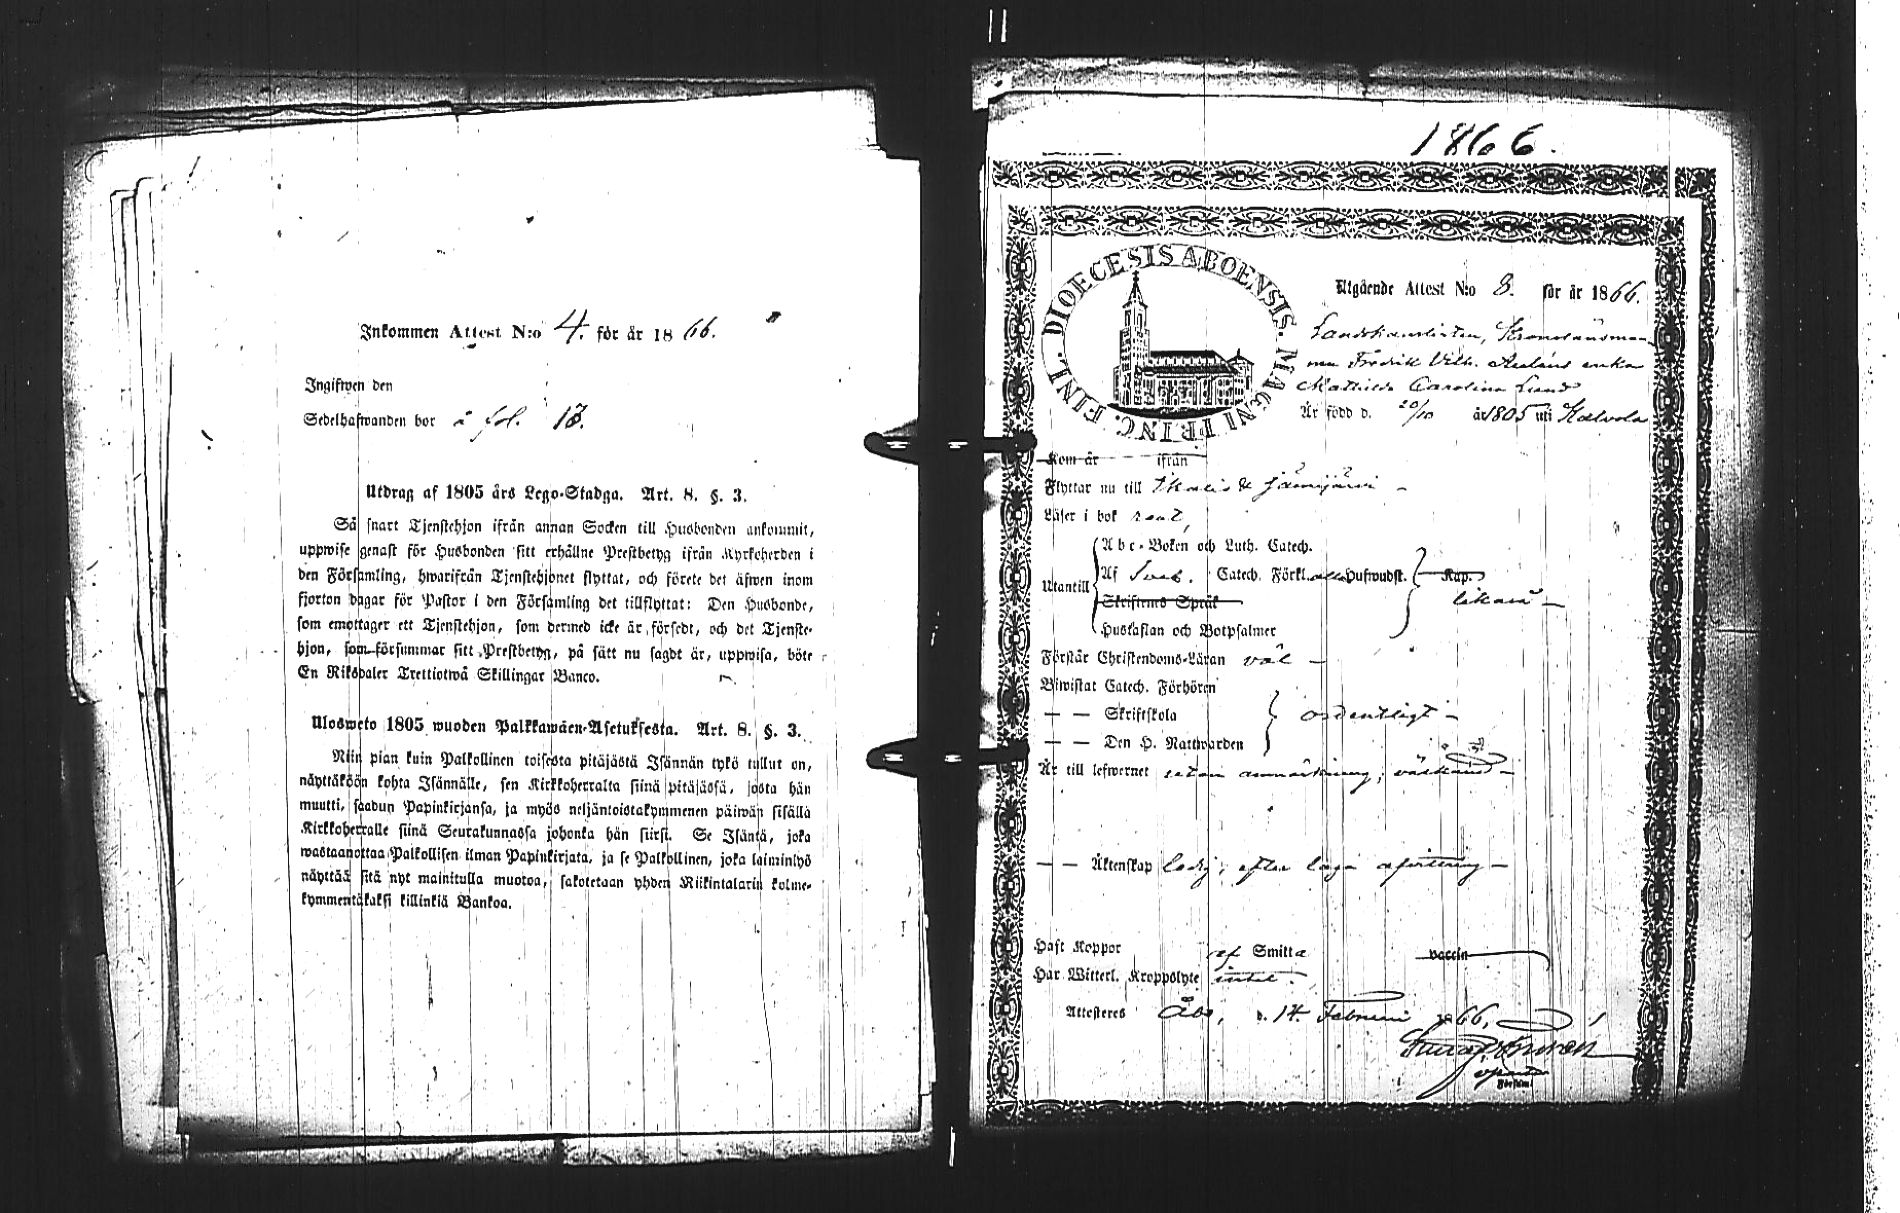 Inkommen Attest N:o 4. för år 18 66.
Ingifwen den
Sedelhafwanden bor å fol. 13.
Utdrag af 1805 års Lego-Stadga. Art. 8. §. 3.
Så snart Tjenstehjon ifrån annan Socken till Husbonden ankommit,
uppwise genast för Husbonden sitt erhållne Prestbetyg ifrån Kyrkoherden i
den Församling, hwarifrån Tjenstehjonet flyttat, och förete det äfwen inom
fjorton dagar för Pastor i den Församling det tillflyttat: Den Husbonde,
som emottager ett Tjenstehjon, som dermed icke är försedt, och det Tjenste-
hjon, som försummar sitt Prestbetyg, på sätt nu sagdt är, uppwisa, böte
En Riksdaler Trettiotwå Skillingar Banco.
Ulosweto 1805 wuoden Palkkawäen-Asetuksesta. Art. 8. §. 3.
Niin pian kuin Palkollinen toisesta pitäjästä Isännän tykö tullut on,
näyttäköön kohta Isännälle, sen Kirkkoherralta siinä pitäjässä, josta hän
muutti, saadun Papinkirjansa, ja myös neljäntoistakymmenen päiwän sisällä
Kirkkoherralle siinä Seurakunnassa johonka hän siirsi. Se Isäntä, joka
wastaanottaa Palkollisen ilman Papinkirjata, ja se Palkollinen, joka laiminlyö
näyttää sitä nyt mainitulla muotoa, sakotetaan yhden Riikintalarin kolme-
kymmentäkaksi killinkiä Bankoa.
1866.
DIOECESIS ABOENSIS. MAGNI PRINC. FINL.
Utgående Attest N:o 8. för år 1866.
Landskanslisten, Kronolänsman-
nen Fredrik Vilh. enka
Mathilda Carolina Lund
Är född d. 20/10 år 1805 uti Kalvola
Kom år ifrån
Flyttar nu till Ikalis & Jämijärvi -
Läser i bok rent,
Utantill
Abc-Boken och Luth. Catech.
Af Sveb. Catech. Förkl. alla Hufwudst. Kap.
Skriftens Språk
likaså -
Hustaflan och Botpsalmer
Förstår Christendoms-Läran väl -
Biwistat Catech. Förhören
— — Skriftskola ordentligt -
— — Den H. Nattwarden
Är till lefwernet utan anmärkning, välkänd -
— — Äktenskap ledig, efter laga afvittring -
Haft Koppor af Smitta vaccin
Har Witterl. Kroppslyte intet.
Attesteras Åbo, d. 14. Februari 1866.
Församl